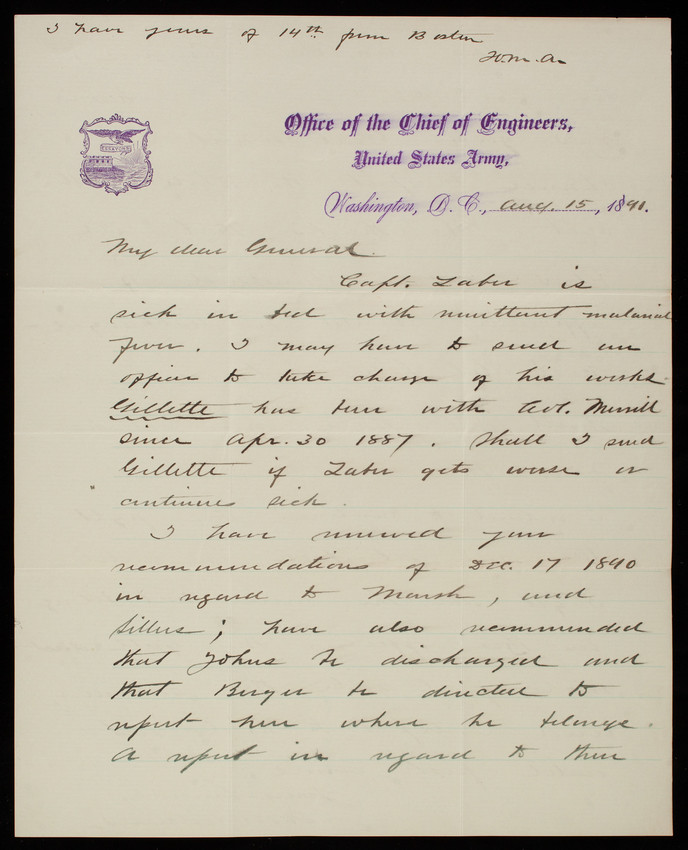 I have yours of 14th from Boston
H.M.A.
ESSAYONS
Office of the Chief of Engineers,
United States Army,
Washington, D. C., Aug. 15, 1891.
My dear General.
Capt. Taber is
sick in bed with remittent malarial
fever. I may have to send an
officer to take charge of his works.
Gillette has been with Col. Merrill
since Apr. 30 1887. Shall I send
Gillette if Taber gets worse or
continues sick.
I have renewed your
recommendations of Dec. 17 1890
in regard to Marsh, and
; have also recommended
that Johns be discharged and
that Berger be directed to
report here where he belongs.
A report in regard to these